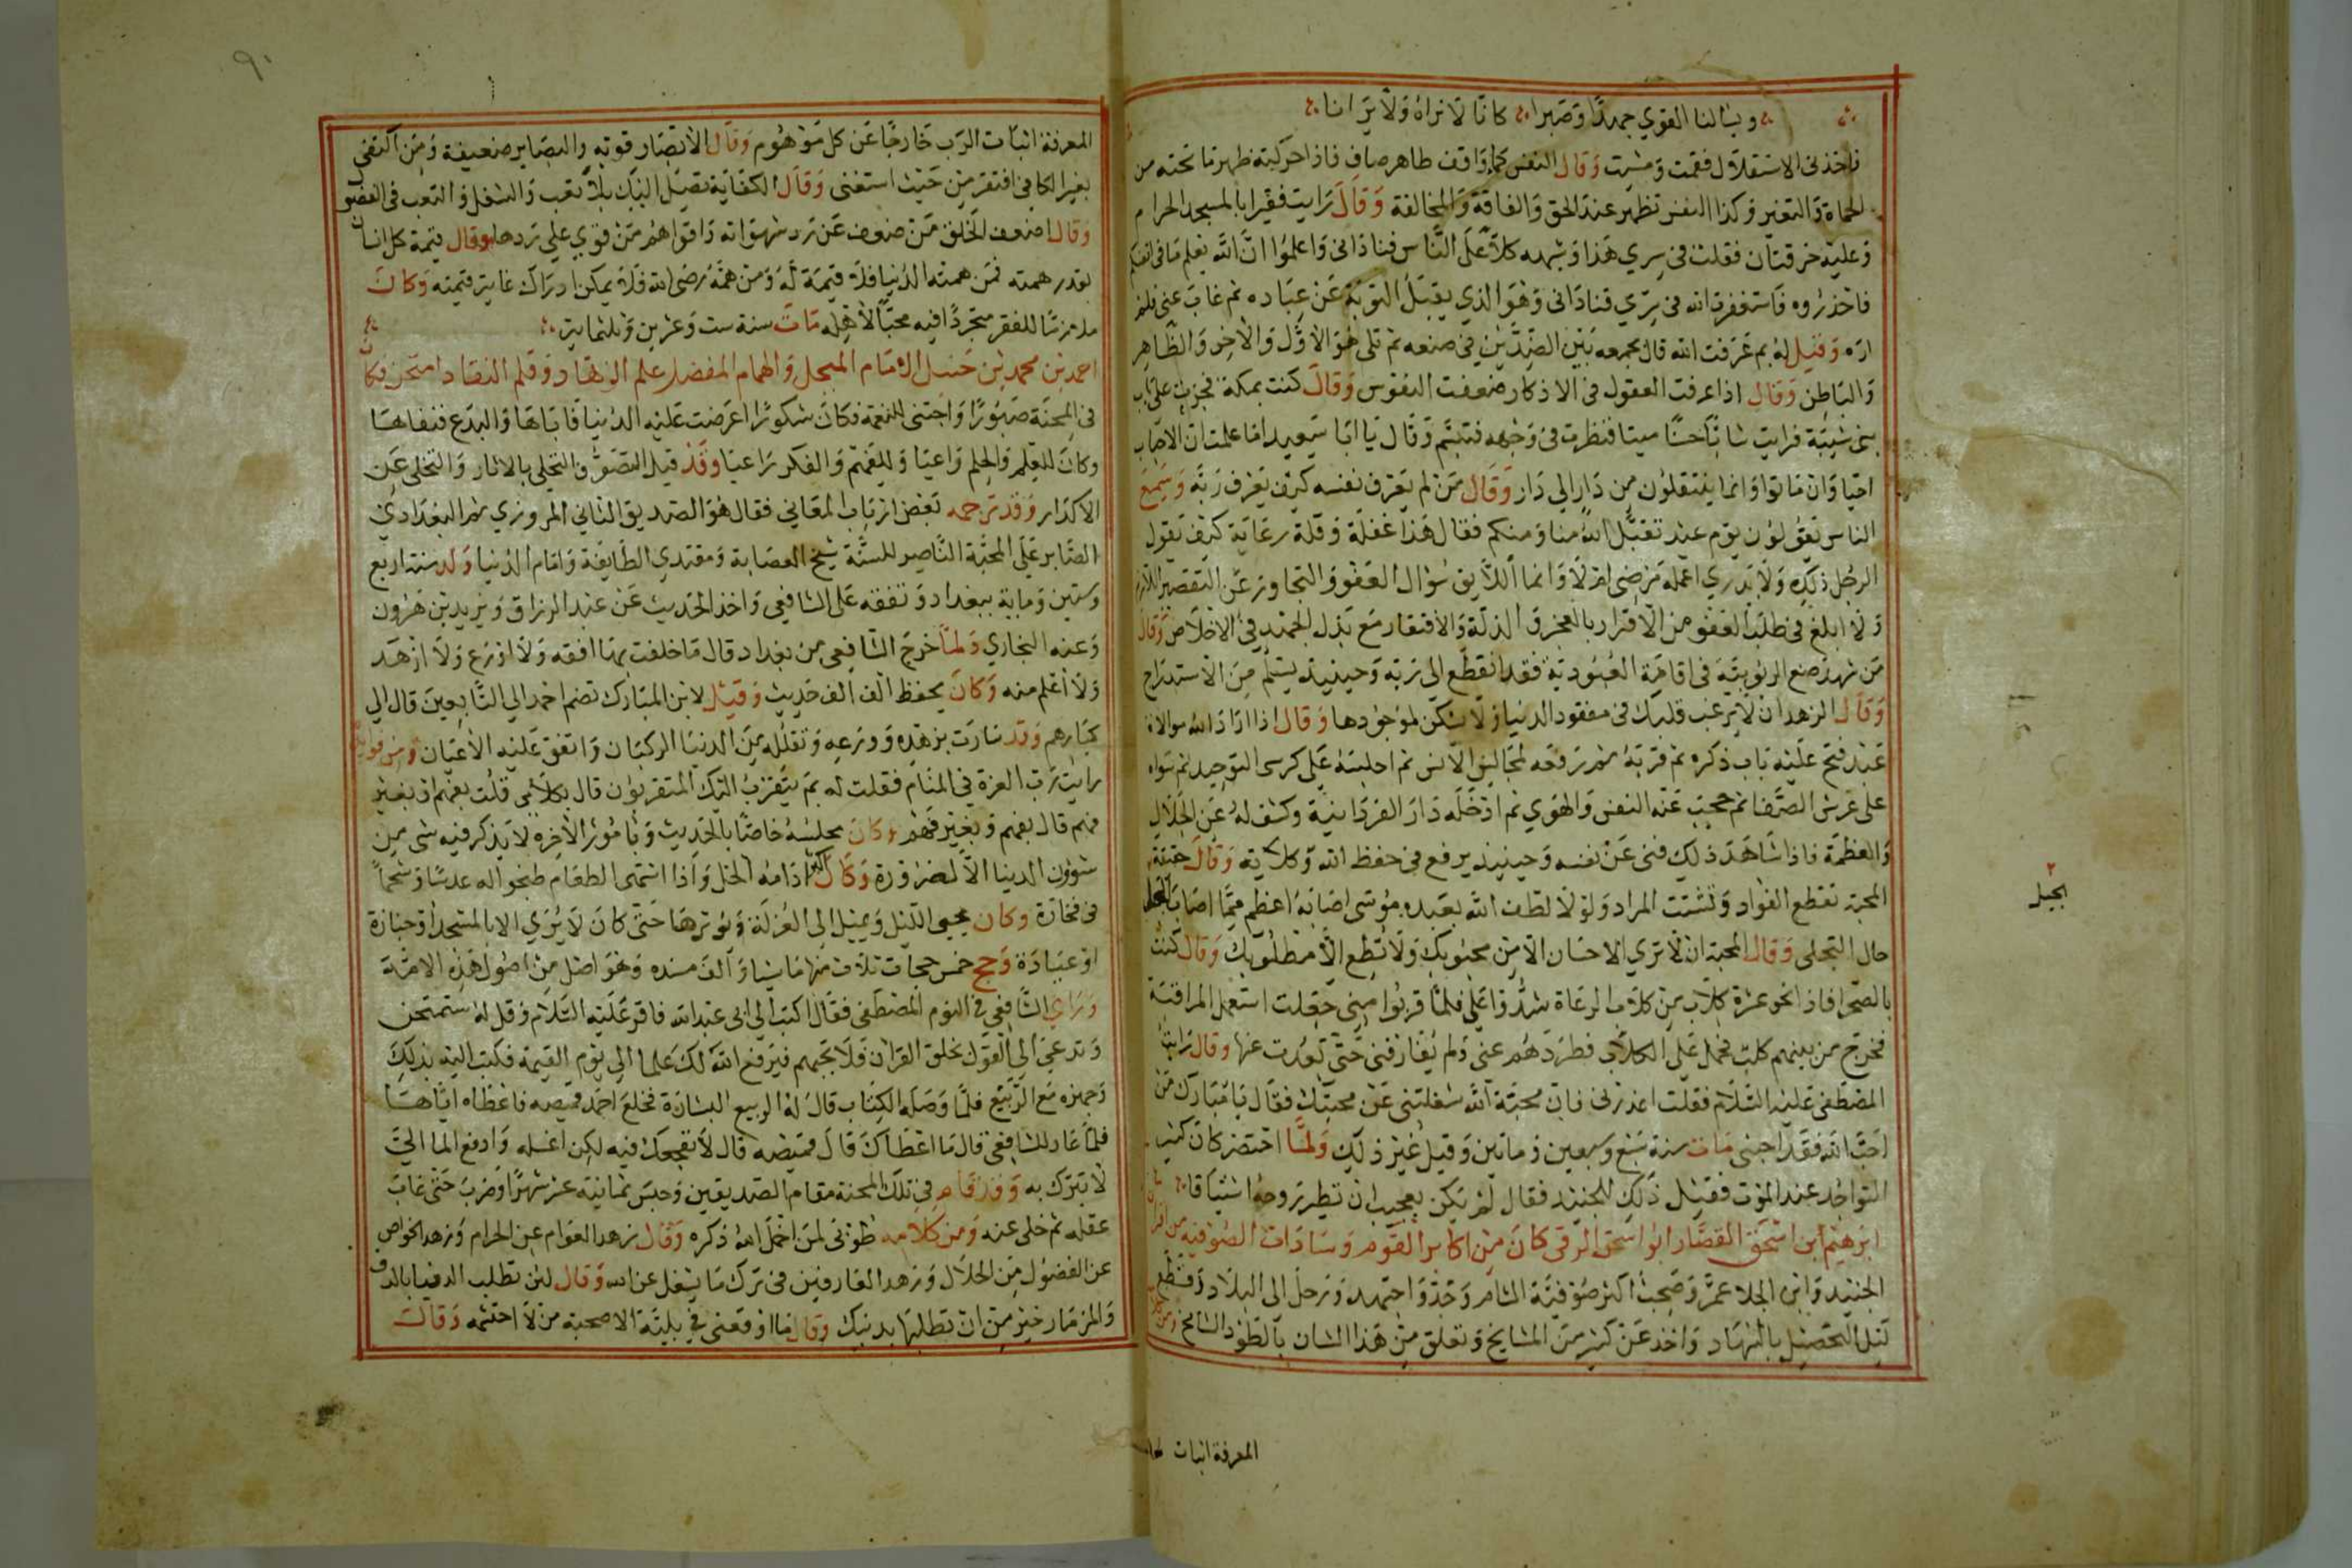 ويسالنا القوي جهدا وصبرا كانا لا نراه ولا يرانا
فاخذني الاستقلال فقمت ومشيت وقال النفس كماء واقف طاهر صاف فاذا حركته ظهر ما تحته من
الحماة والتغير وكذا النفس تظهر عند الحق والفاقة والمخالفة وقال رايت فقيرا بالمسجد الحرام
وعليه خرقتان فقلت في سري هذا وشبهه كلا على الناس فناداني واعلموا ان الله يعلم ما في انفسكم
فاحذروه فاستغفرت الله في سري فناداني وهو الذي يقبل التوبة عن عباده ثم غاب عني فلم
اره وقيل له بم عرفت الله قال بجمعه بين الضدين في صنعه ثم تلى هو الاول والاخر والظاهر
والباطن وقال اذا عرفت العقول في الاذكار ضعفت النفوس وقال كنت بمكة فجزت على باب
بني شيبة فرايت شابا حسنا ميتا فنظرت في وجهه فتبسم وقال يا ابا سعيد اما علمت ان الاحباب
احيا وان ماتوا وانما ينتقلون من دار الي دار وقال من لم يعرف نفسه كيف يعرف ربه وسمع
الناس يقولون يوم عيد تقبل الله منا ومنكم فقال هذا غفلة وقلة رعاية كيف يقول
الرجل ذلك ولا يدري اعمله مرضي ام لا وانما اللايق سؤال العفو والتجاوز عن التقصير اللازم
ولا ابلغ في طلب العفو من الاقرار بالعجز والذلة والافتقار مع بذل الجهد في الاخلاص وقال
من شهد صنع الربوبية في اقامة العبودية فقد انقطع الى ربه وحينيذ يسلم من الاستدراج
وقال الزهد ان لا يرغب قلبك في مفقود الدنيا ولا يسكن لموجودها وقال اذا اراد الله موالاة
عبد فتح عليه باب ذكره ثم قربه ثم رفعه لمجالس الانس ثم اجلسه على كرسى التوحيد ثم سواه
على عرش الصفا ثم حجب عنه النفس والهوي ثم ادخله دار الفردانية وكشف له عن الجلال
والعظمة فاذا شاهد ذلك فنى عن نفسه وحينيذ يرفع في حفظ الله وكلايته وقال حقيقة
المحبة تقطع الفواد وتشتت المراد ولولا لطف الله بعبده موسى اصابه اعظم مما اصاب الجبل
حال التجلي وقال المحبة ان لا تري الاحسان الا من محبوبك ولا تطع الا مطلوبك وقال كنت
بالصحرا فاذا نحو عشرة كلاب من كلاب الرعاة شدوا علي فلما قربوا مني جعلت استعمل المراقبة
فخرج من بينهم كلب فحمل على الكلاب فطردهم عني ولم يفارقني حتى تبعدت عنها وقال رايت
المصطفى عليه السلام فقلت اعذرني فان محبة الله شغلتني عن محبتك فقال يا مبارك من
احب الله فقد احبني مات سنة سبع وسبعين ومايتين وقيل غير ذلك ولما احتضر كان كثير
التواجد عند الموت فقيل ذلك للجنيد فقال لم يكن بعجيب ان تطير روحه اشتياقا
ابرهيم ابن اسحق القصار ابو اسحق الرقى كان من اكابر القوم وسادات الصوفية من اقران
الجنيد وابن الجلا عمر وصحب اكثر صوفية الشام وجد واجتهد ورحل الى البلاد وقطع
ليل التحصيل بالسهاد واخذ عن كثير من المشايخ وتعلق من هذا الشان بالطود الشامخ ومن كلامه
٢
الجبل
المعرفة اثبات
٩٠
المعرفة اثبات الرب خارجا عن كل موهوم وقال الابصار قوية والبصاير ضعيفة ومن اكتفى
بغير الكافي افتقر من حيث استغنى وقال الكفاية تصل اليك بلا تعب والشغل والتعب في الفضول
وقال اضعف الخلق من ضعف عن رد شهواته واقواهم من قوي علي ردها وقال قيمة كل انسان
بقدر همته فمن همته الدنيا فلا قيمة له ومن همه رضى الله فلا يمكن ادراك غاية قيمته وكان
ملازما للفقر متجردا فيه محبا لاهله مات سنة ست وعشرين وثلثماية
احمد بن محمد بن حنبل الامام المبجل والهمام المفضل علم الزهاد وقلم النقاد امتحن فكان
في المحنة صبورا واجتنى للنعمة فكان شكورا اعرضت عليه الدنيا فاباها والبدع فنفاها
وكان للعلم والحلم واعيا وللفهم والفكر راعيا وقد قيل التصوف التحلي بالاثار والتخلي عن
الاكدار وقد ترجمه بعض ارباب المعاني فقال هو الصديق الثاني المروزي ثم البغدادي
الصابر علي المحنة الناصر للسنة شيخ العصابة ومقتدي الطايفة وامام الدنيا ولد سنة اربع
وستين وماية ببغداد وتفقه على الشافعي واخذ الحديث عن عبد الرزاق ويزيد بن هرون
وعنه البخاري ولما خرج الشافعي من بغداد قال ما خلفت بها افقه ولا اورع ولا ازهد
ولا اعلم منه وكان يحفظ الف الف حديث وقيل لابن المبارك تضم احمد الي التابعين قال الي
كبارهم وقد سارت بزهده وورعه وتقلله من الدنيا الركبان واتفق عليه الاعيان ومن فوايده
رايت رب العزة في المنام فقلت له بم يتقرب اليك المتقربون قال بكلامي قلت بفهم او بغير
فهم قال بفهم وبغير فهم وكان مجلسه خاصا بالحديث وبامور الاخرة لا يذكر فيه شي من
شوون الدنيا الا لضرورة وكان اكثر ادامه الخل واذا اشتهى الطعام طبخوا له عدسا وشحما
في فخارة وكان يحيي الليل ويميل الى العزلة ويوثرها حتى كان لا يرى الا بالمسجد او جنازة
او عيادة وحج خمس حجات ثلاث منها ماشيا والف مسنده وهو اصل من اصول هذه الامة
وراي الشافعي في النوم المصطفى فقال اكتب الي ابى عبد الله فاقر عليه السلام وقل له ستمتحن
وتدعى الي القول بخلق القران ولا تجبهم فيرفع الله لك علما الي يوم القيمة فكتب اليه بذلك
وجهزه مع الربيع فلما وصله الكتاب قال له الربيع البشارة فخلع احمد قميصه فاعطاه اياها
فلما عاد للشافعي قال ما اعطاك قال قميصه قال لا نفجعك فيه لكن اغسله وادفع الما الي
لا تبرك به وقد قام في تلك المحنة مقام الصديقين وحبس ثمانية عشر شهرا وضرب حتى غاب
عقله ثم خلى عنه ومن كلامه طوبى لمن اخمل الله ذكره وقال زهد العوام عن الحرام وزهد الخواص
عن الفضول من الحلال وزهد العارفين في ترك ما يشغل عن الله وقال لين تطلب الدنيا بالدف
والمزمار خير من ان تطلبها بدينك وقال ما اوقعني في بلية الا صحبة من لا احتشمه وقال